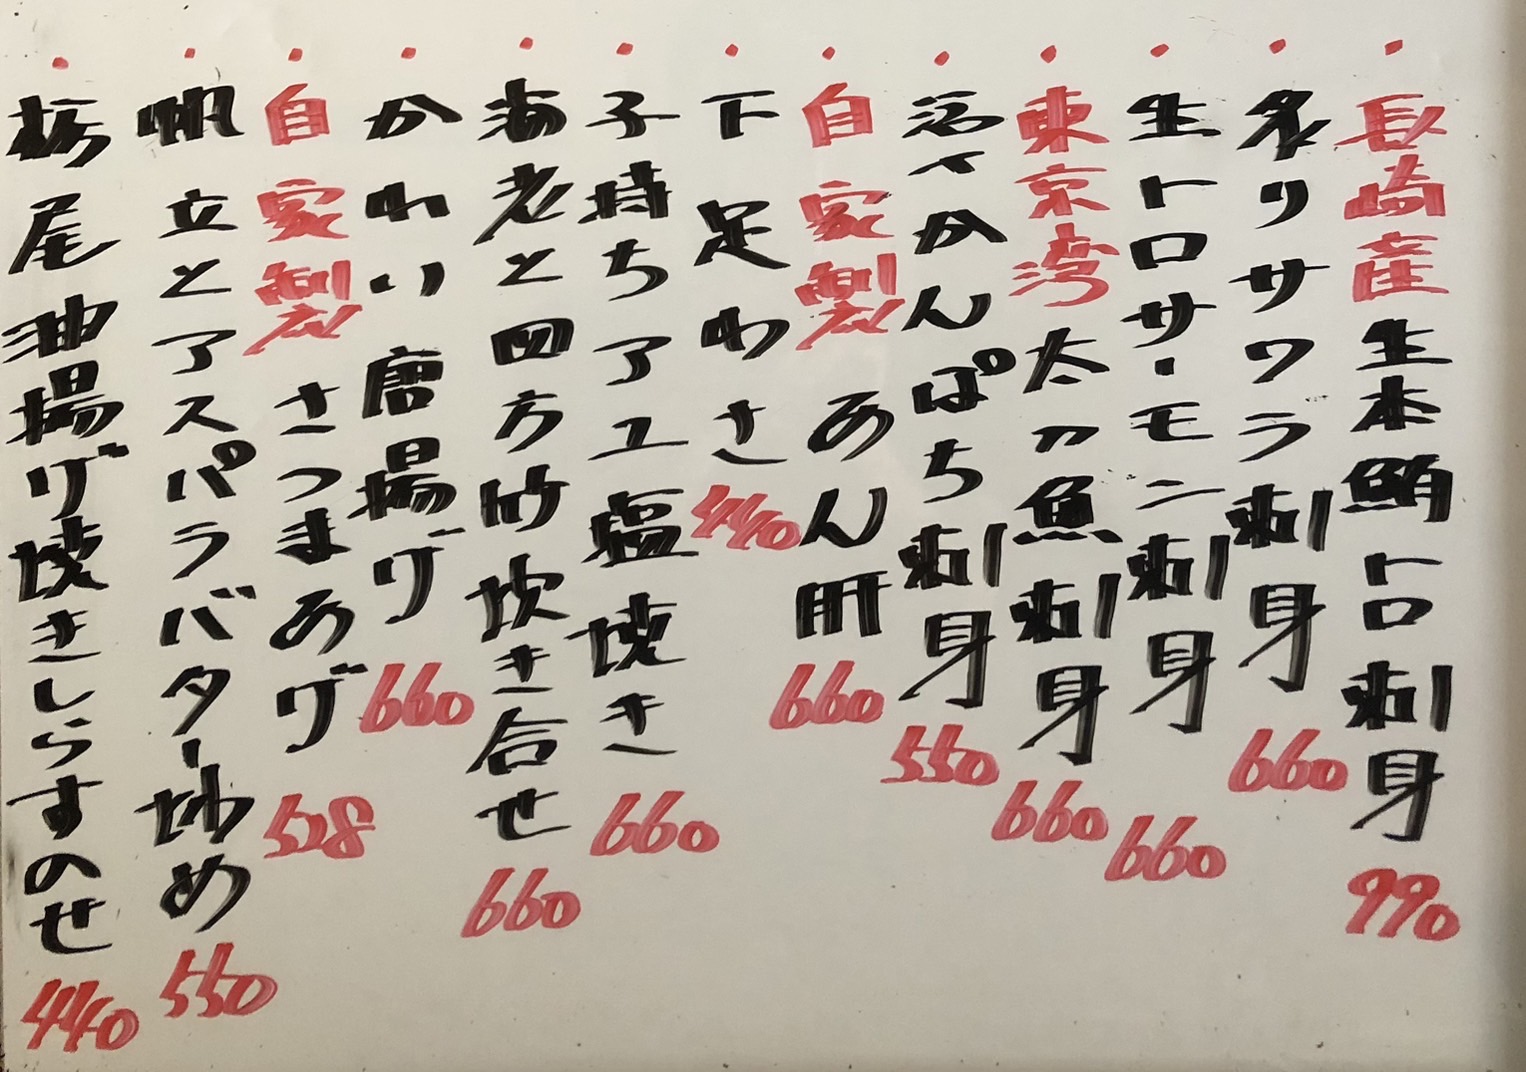 ・長崎産生本鮪トロ刺身 990
・炙りサワラ刺身 660
・生トロサーモン刺身 660
・東京湾太刀魚刺身 660
・活〆かんぱち刺身 550
・自家製 あん肝 660
・下足わさ 440
・子持ちアユ塩焼き 660
・海老と四方竹炊き合せ 660
・かわい唐揚げ 660
・自家製 さつまあげ 528
・帆立とアスパラバター炒め 550
・栃尾油揚げ焼きしらすのせ 440